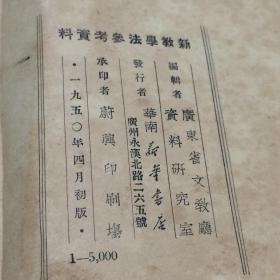 新教學法參考資料
編輯者
廣東省文教廳
資料研究室
發行者
華南新華書店
廣州永漢北路二六五號
承印者
蔚興印刷場
·一九五〇年四月初版·
1—5,000